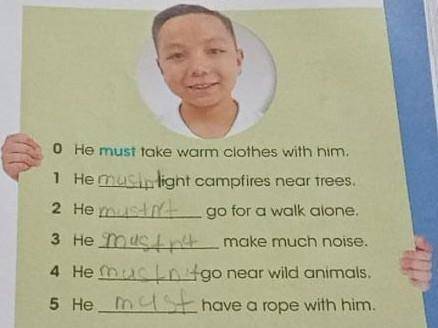 0 He must take warm clothes with him.
1 He mustn't light campfires near trees.
2 He mustn't go for a walk alone.
3 He mustn't make much noise.
4 He mustn't go near wild animals.
5 He must have a rope with him.